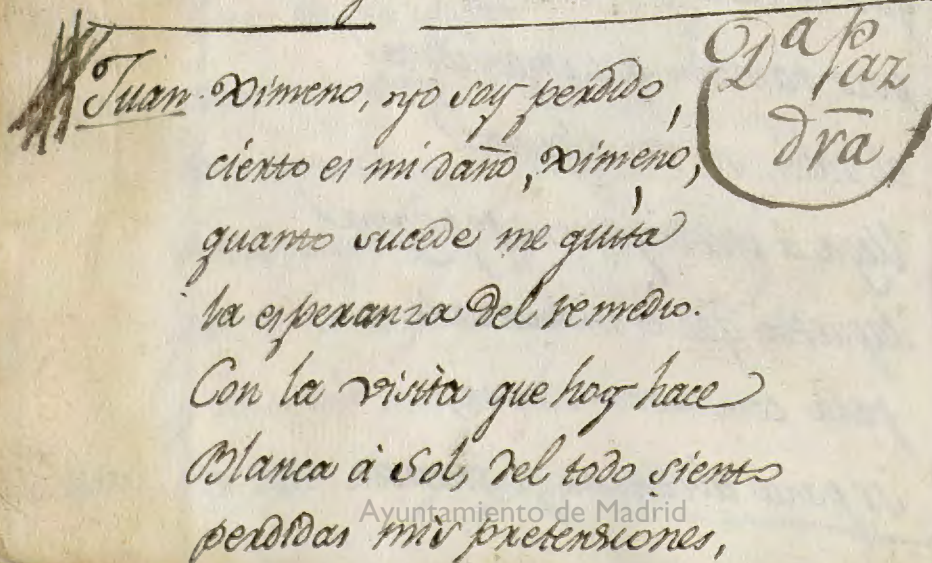 Juan. Ximeno, yo soy perdido,
cierto es mi daño, Ximeno,
quanto sucede me quita
la esperanza del remedio.
Con la visita que hoy hace
Blanca à Sol, del todo siento
perdidas mis pretensiones,
Da Paz
dra
Ayuntamiento de Madrid